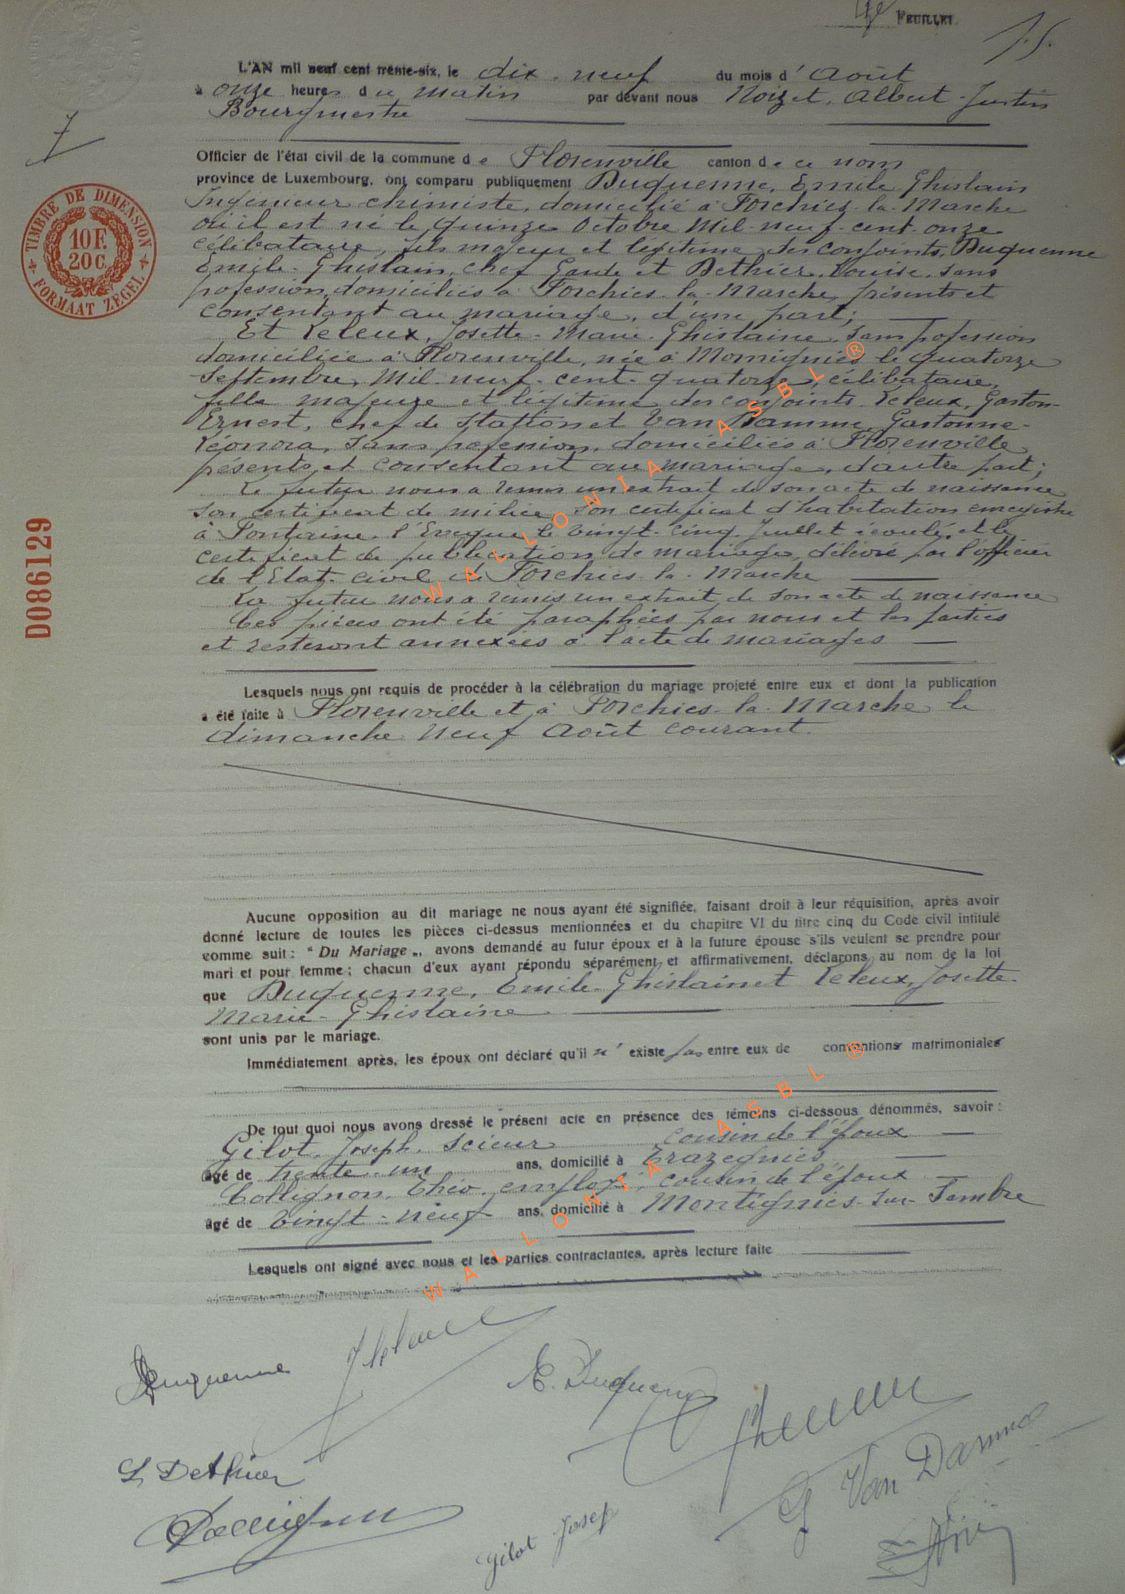 FEUILLET
L'AN mil neuf cent trente-six, le dix-neuf du mois d'Août
à onze heures du matin par devant nous Noizet, Albert-Justin
Bourgmestre
7
Officier de l'état civil de la commune de Florenville canton de ce nom
province de Luxembourg, ont comparu publiquement Duquenne, Emile Ghislain
Ingénieur chimiste, domicilié à Forchies-la-Marche
où il est né le quinze Octobre Mil-neuf-cent-onze
célibataire, fils majeur et légitime des conjoints Duquenne
Emile-Ghislain, chef Garde et Dethier, Louise, sans
profession, domiciliés à Forchies-la-Marche, présents et
consentant au mariage, d'une part;
Et Leleux, Josette-Marie-Ghislaine, sans profession
domiciliée à Florenville, née à Momignies le quatorze
Septembre, Mil-neuf-cent-quatorze, célibataire,
fille majeure et légitime des conjoints Leleux, Gaston-
Ernest, chef de station et Van Damme, Gastonne-
Léonora, sans profession, domiciliés à Florenville,
présents et consentant au mariage, d'autre part;
Le futur nous a remis un extrait de son acte de naissance
son certificat de milice, son certificat d'habitation enregistré
à Fontaine-l'Evêque le vingt-cinq Juillet écoulé, et le
certificat de publication de mariage délivré par l'officier
de l'Etat-civil de Forchies-la-Marche
La future nous a remis un extrait de son acte de naissance
Ces pièces ont été paraphées par nous et les parties
et resteront annexées à l'acte de mariages
Lesquels nous ont requis de procéder à la célébration du mariage projeté entre eux et dont la publication
a été faite à Florenville et à Forchies-la-Marche le
dimanche neuf Août courant.
Aucune opposition au dit mariage ne nous ayant été signifiée, faisant droit à leur réquisition, après avoir
donné lecture de toutes les pièces ci-dessus mentionnées et du chapitre VI du titre cinq du Code civil intitulé
comme suit: "Du Mariage„, avons demandé au futur époux et à la future épouse s'ils veulent se prendre pour
mari et pour femme; chacun d'eux ayant répondu séparément et affirmativement, déclarons au nom de la loi
que Duquenne, Emile-Ghislain et Leleux, Josette-
Marie-Ghislaine
sont unis par le mariage.
Immédiatement après, les époux ont déclaré qu'il n'existe pas entre eux de conventions matrimoniales
De tout quoi nous avons dressé le présent acte en présence des témoins ci-dessous dénommés, savoir:
Gilot, Joseph, scieur cousin de l'époux
âgé de trente-un ans, domicilié à Trazegnies
Collignon, Théo, employé, cousin de l'époux
âgé de vingt-neuf ans, domicilié à Montignies-sur-Sambre
Lesquels ont signé avec nous et les parties contractantes, après lecture faite
Duquenne J Leleux E. Duquenne
L Dethier G Van Damme
Collignon Gilot Josef
TIMBRE DE DIMENSION
10F.
20C.
FORMAAT ZEGEL
D086129
WALLONIA ASBL ®
WALLONIA ASBL ®